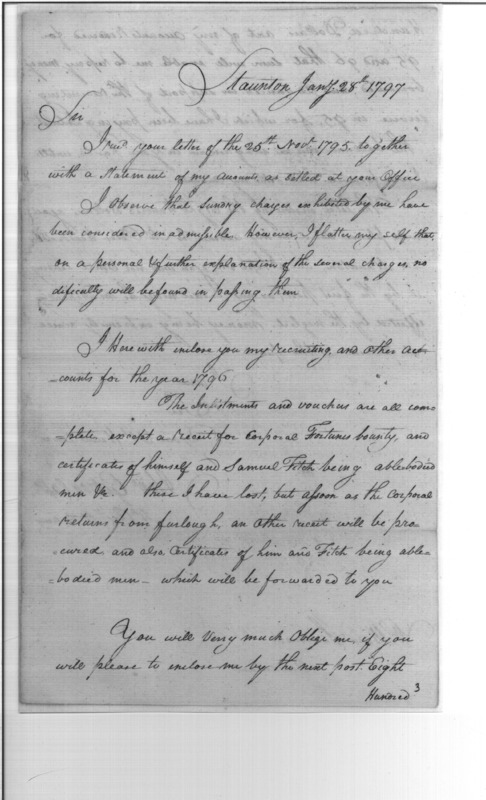 Staunton Jany. 28th 1797
Sir
I recd your letter of the 25th Novr. 1795 together
with a Statement of my accounts, as settled at your Office
I Observe that sundry charges exhibited by me have
been considered inadmissible. However, I flatter my self that
on a personal & further explanation of the several charges, no
dificulty will be found in passing them
I Herewith inclose you my recruiting and other acc-
-counts for the year 1796
The Inlistments and vouchers are all com
-plete, except a receet for Corporal Fortunes bounty, and
certificates of himself and Samuel Fitch being ablebodied
min &c. these I have lost, but assoon as the Corporal
returns from furlough, an other receet will be pro
cured and also Certificates of him and Fitch being able-
-bodied men - which will be forwarded to you
You will Very much Oblige me, if you
will please to inclose me by the next post Eight
Hundred
3